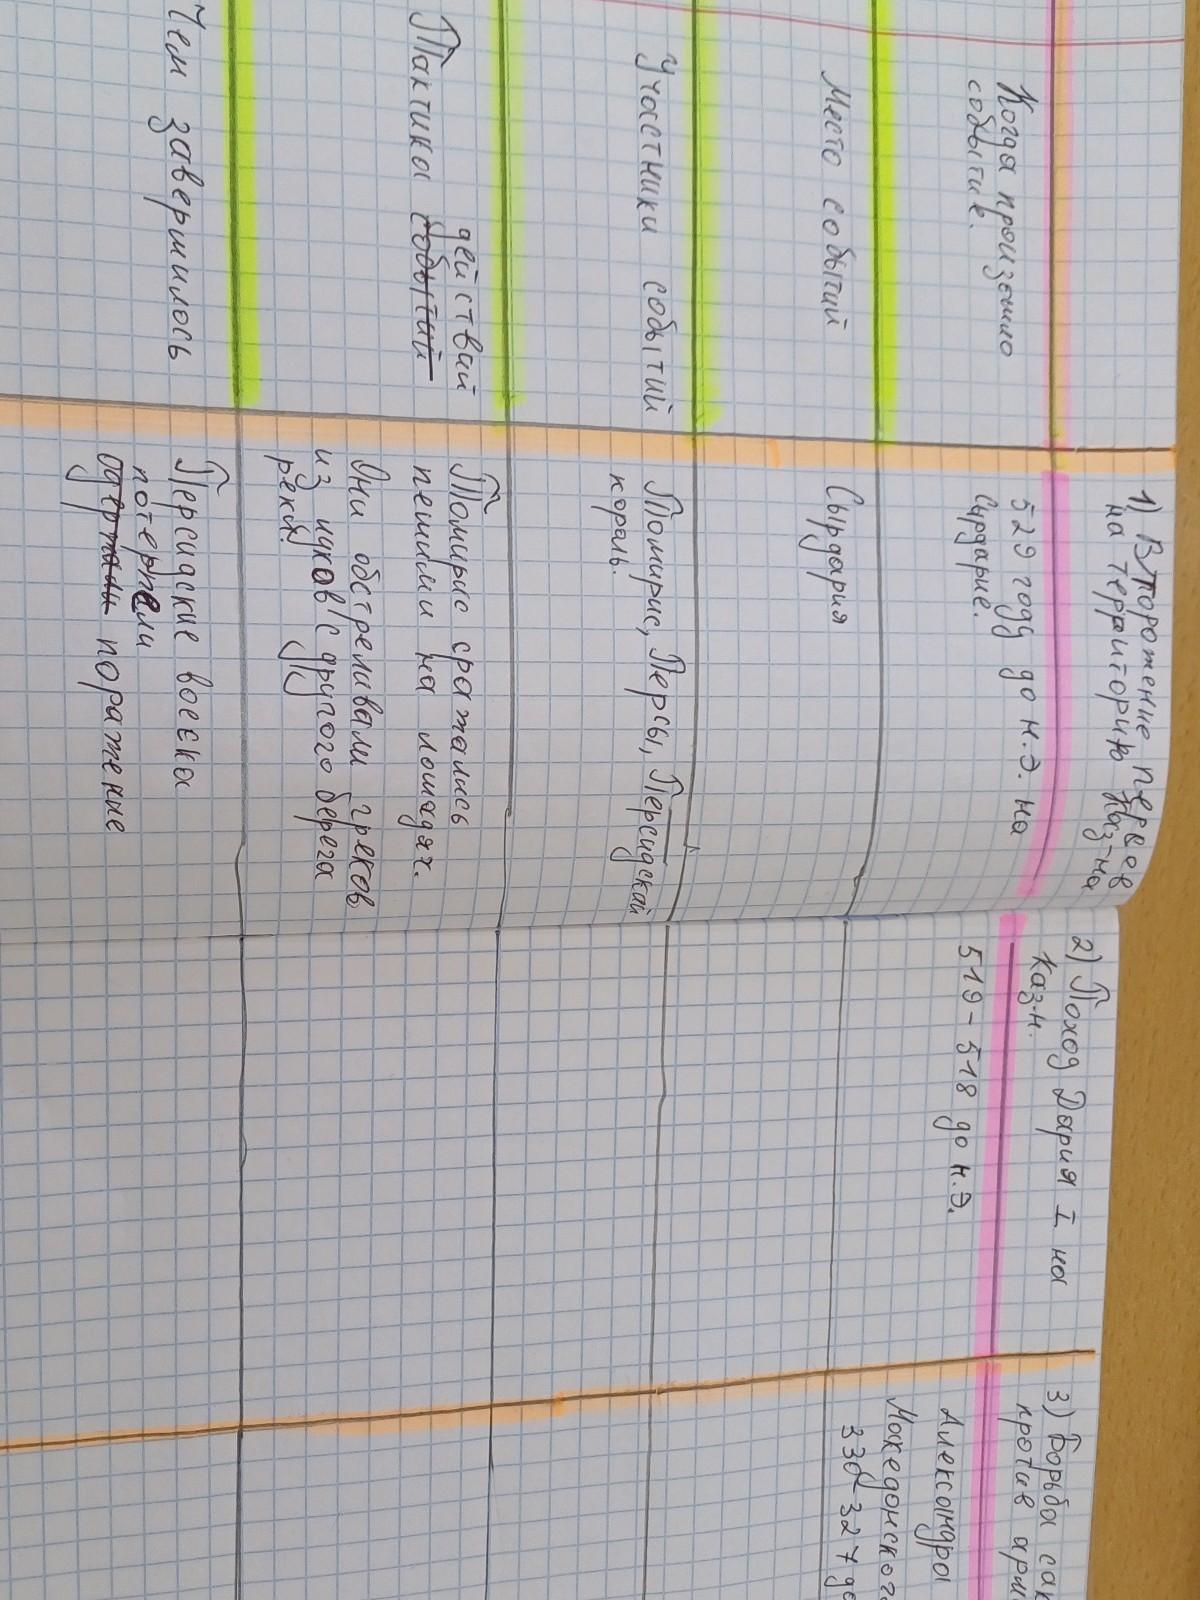 1) Вторжение персов
на территорию Каз-на
2) Поход Дария I на
Каз-н.
3) Борьба сак
против арм
Александра
Македонского
330-327 до
Когда произошло
событие.
529 году до н.э. на
Сырдарие.
519-518 до н.э.
Место событий
Сырдария
Участники событий
Томирис, Персы, Персидский
король.
действий
Тактика событий
Томирис сражались
пешими на лошадях.
Они обстреливали греков
из луков с другого берега
реки.
Чем завершилось
Персидские воска
потерпели
одержали поражение